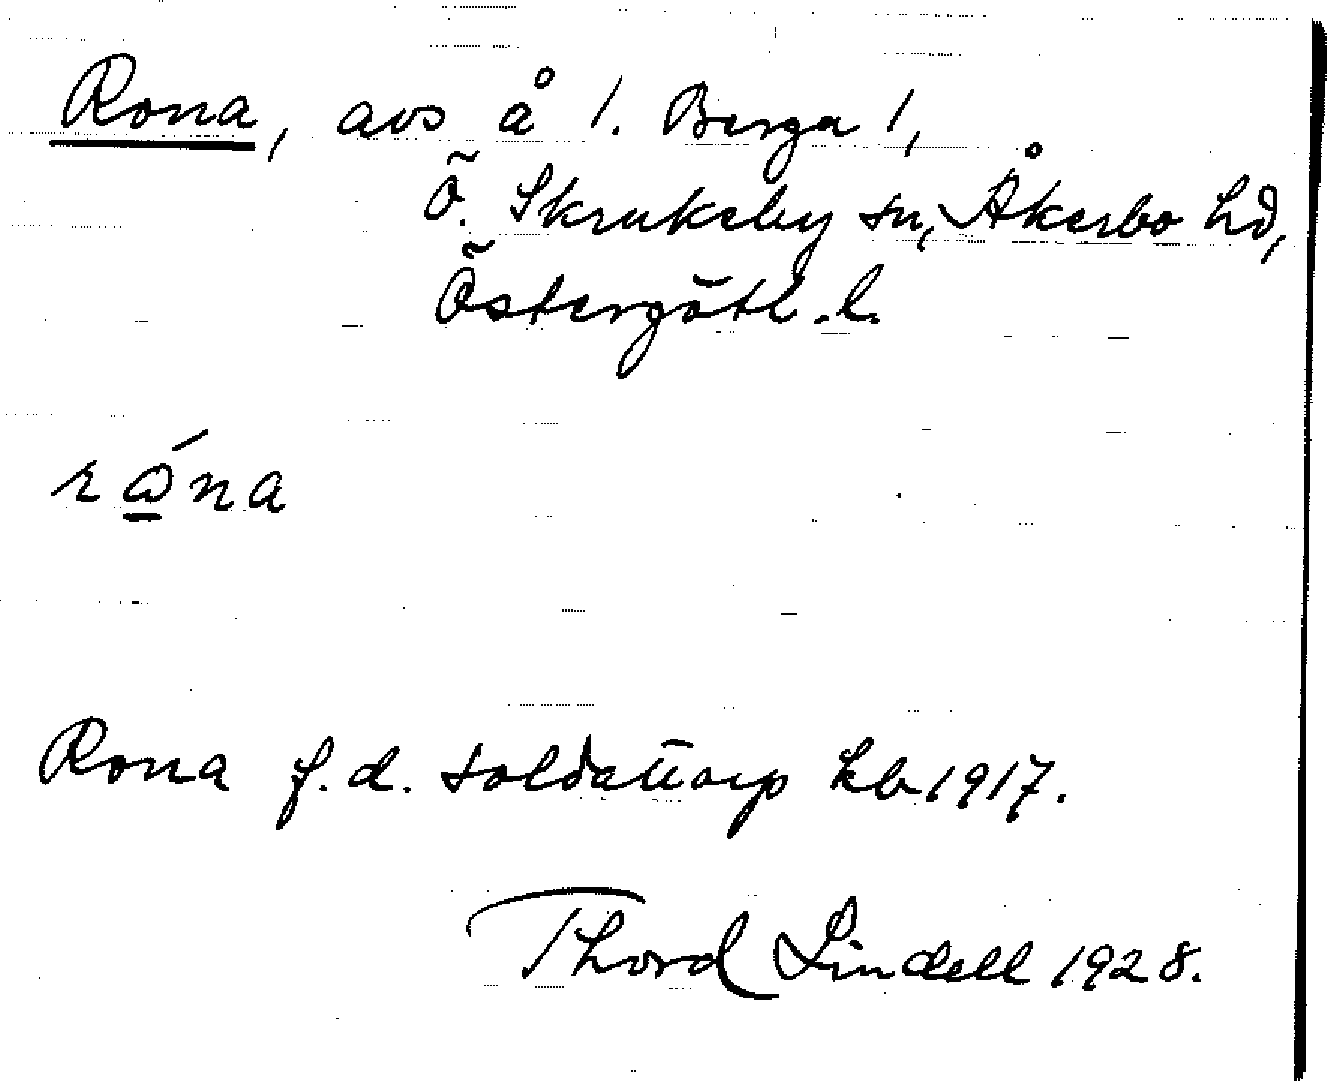 Rona, avs å 1. Berga 1,
Ö. Skrukeby sn, Åkerbo hd,
Östergötl. l.
rǿna
Rona f.d. soldattorp kb 1917.
Thord Lindell 1928.